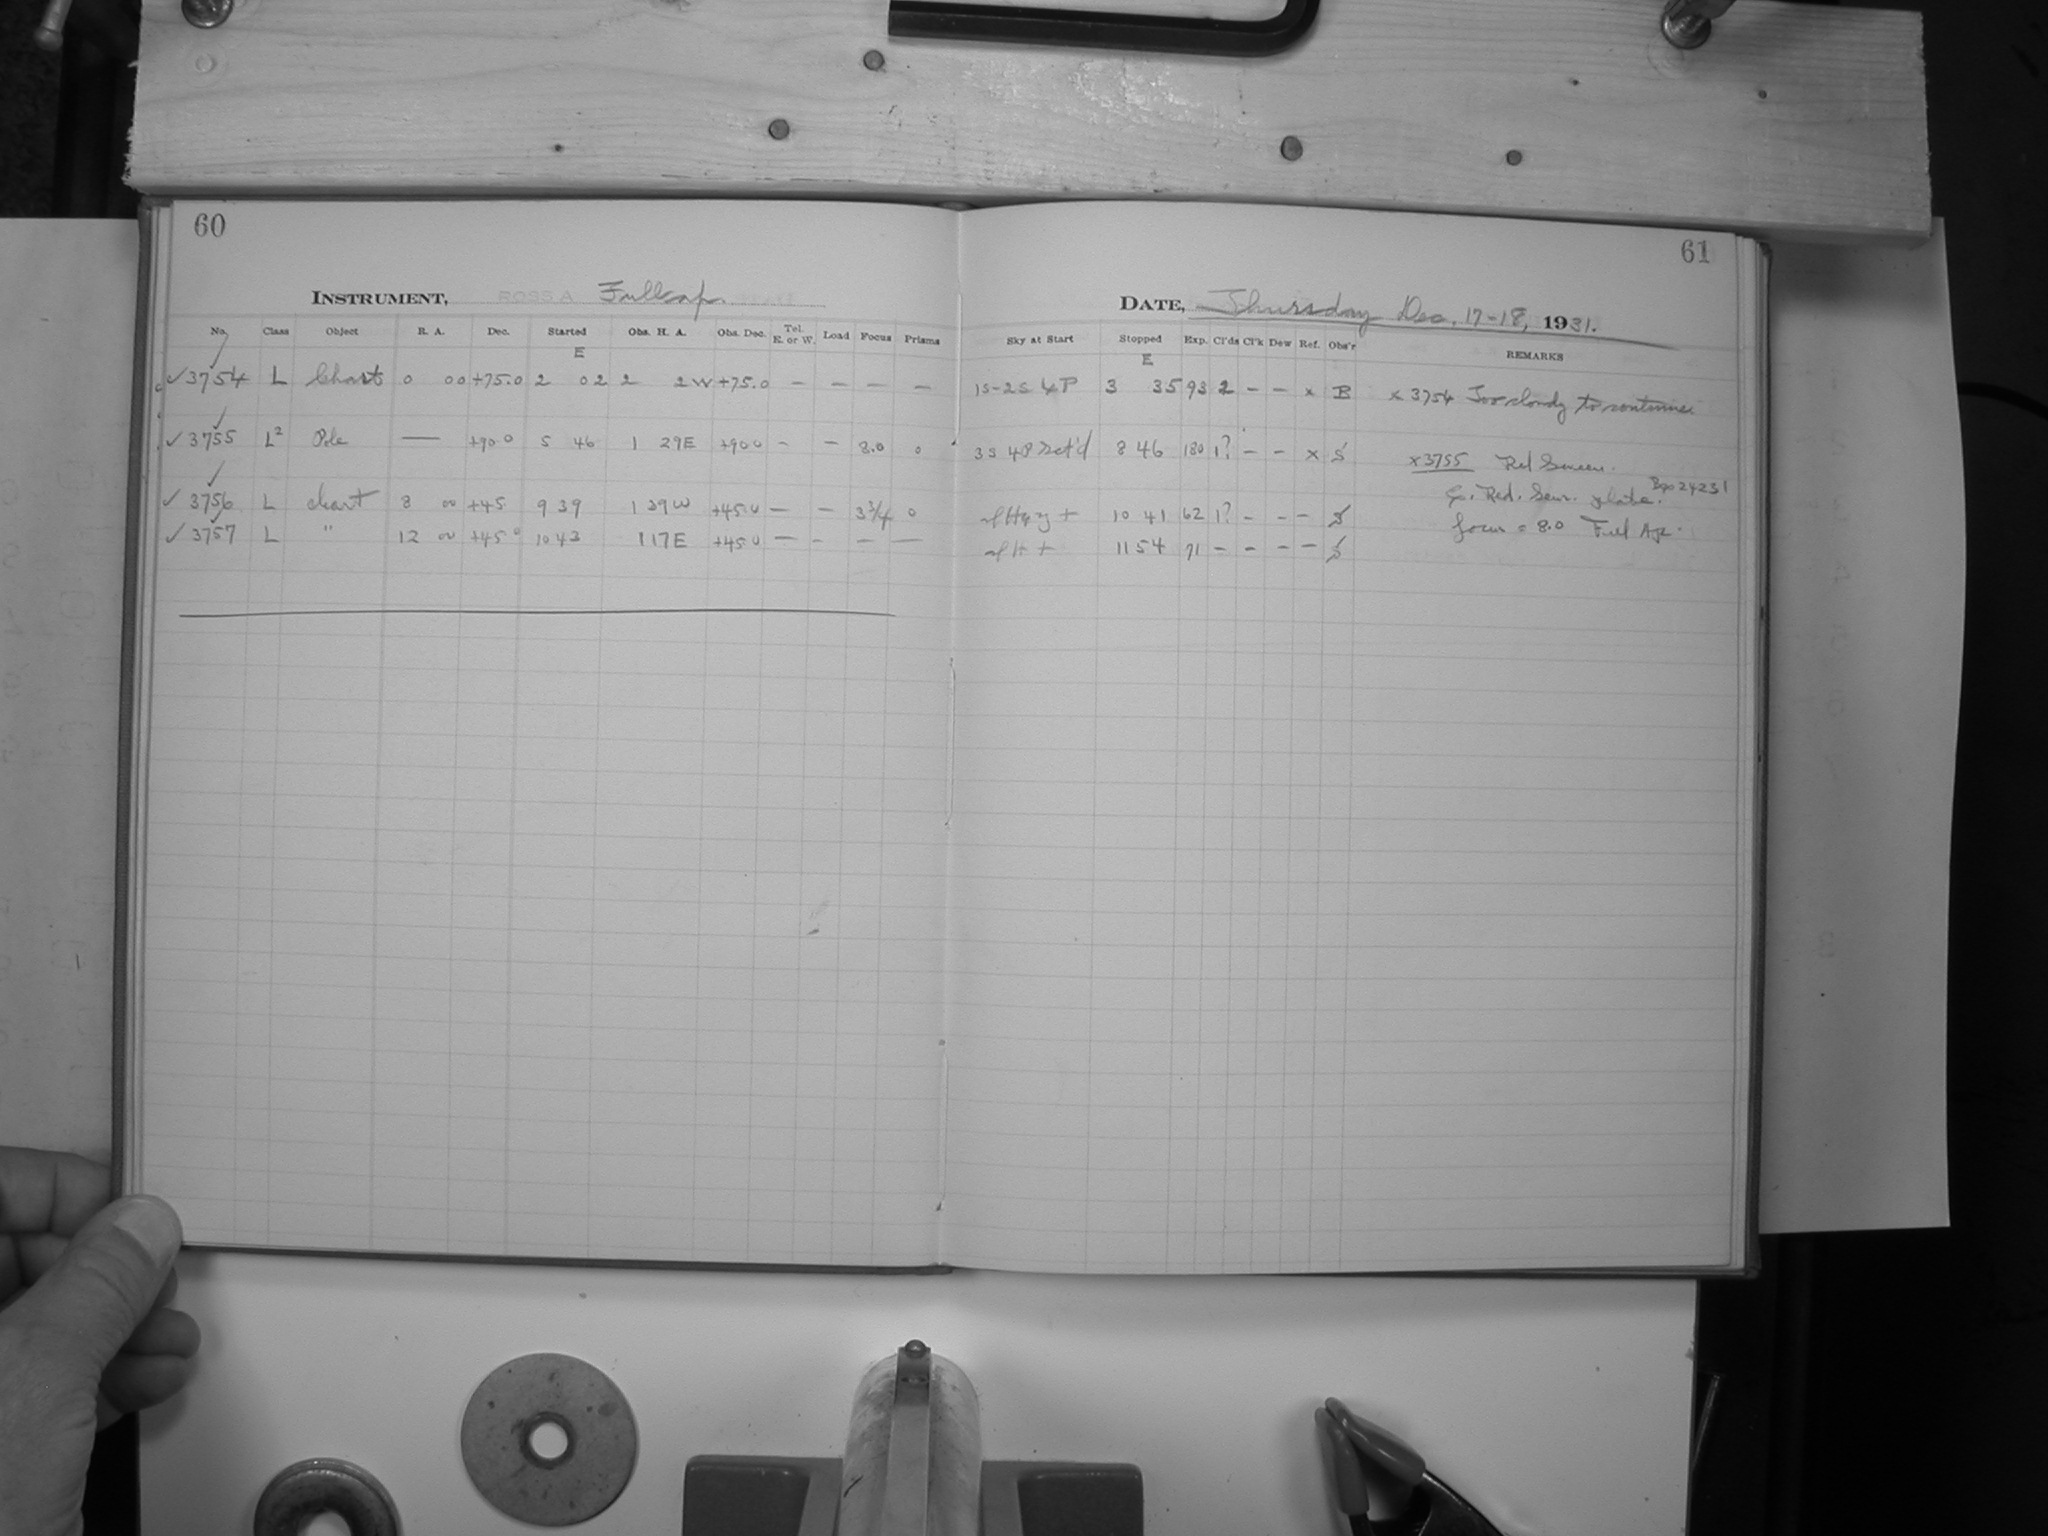 60
INSTRUMENT, ROSS A Full ap.
No. Class Object R. A. Dec. Started Obs. H. A. Obs. Dec. Tel. E. or W. Load Focus Prisms
E
✓ 3754 L Chart 0 00 +75.0 2 02 2 2W +75.0 — — — —
✓ 3755 L² Pole — +90 0 5 46 1 29E +90 0 - — 8.0 0
✓ 3756 L chart 8 00 +45 9 39 1 39W +45.0 — — 3 3/4 0
✓ 3757 L " 12 00 +45 0 10 43 1 17E +45.0 — - — —
61
DATE, Thursday Dec. 17-18, 1931.
Sky at Start Stopped Exp. Cl'ds Cl'k Dew Ref. Obs'r REMARKS
E
1S-2S 4P 3 35 93 2 — — x B x 3754 Too cloudy to continue.
3S 4P 8 46 180 1? — — x S x 3755 Red Screen.
Red. Sens. plate.
10 41 62 1? - - — S focus = 8.0 Full Ap.
11 54 71 — - — — S